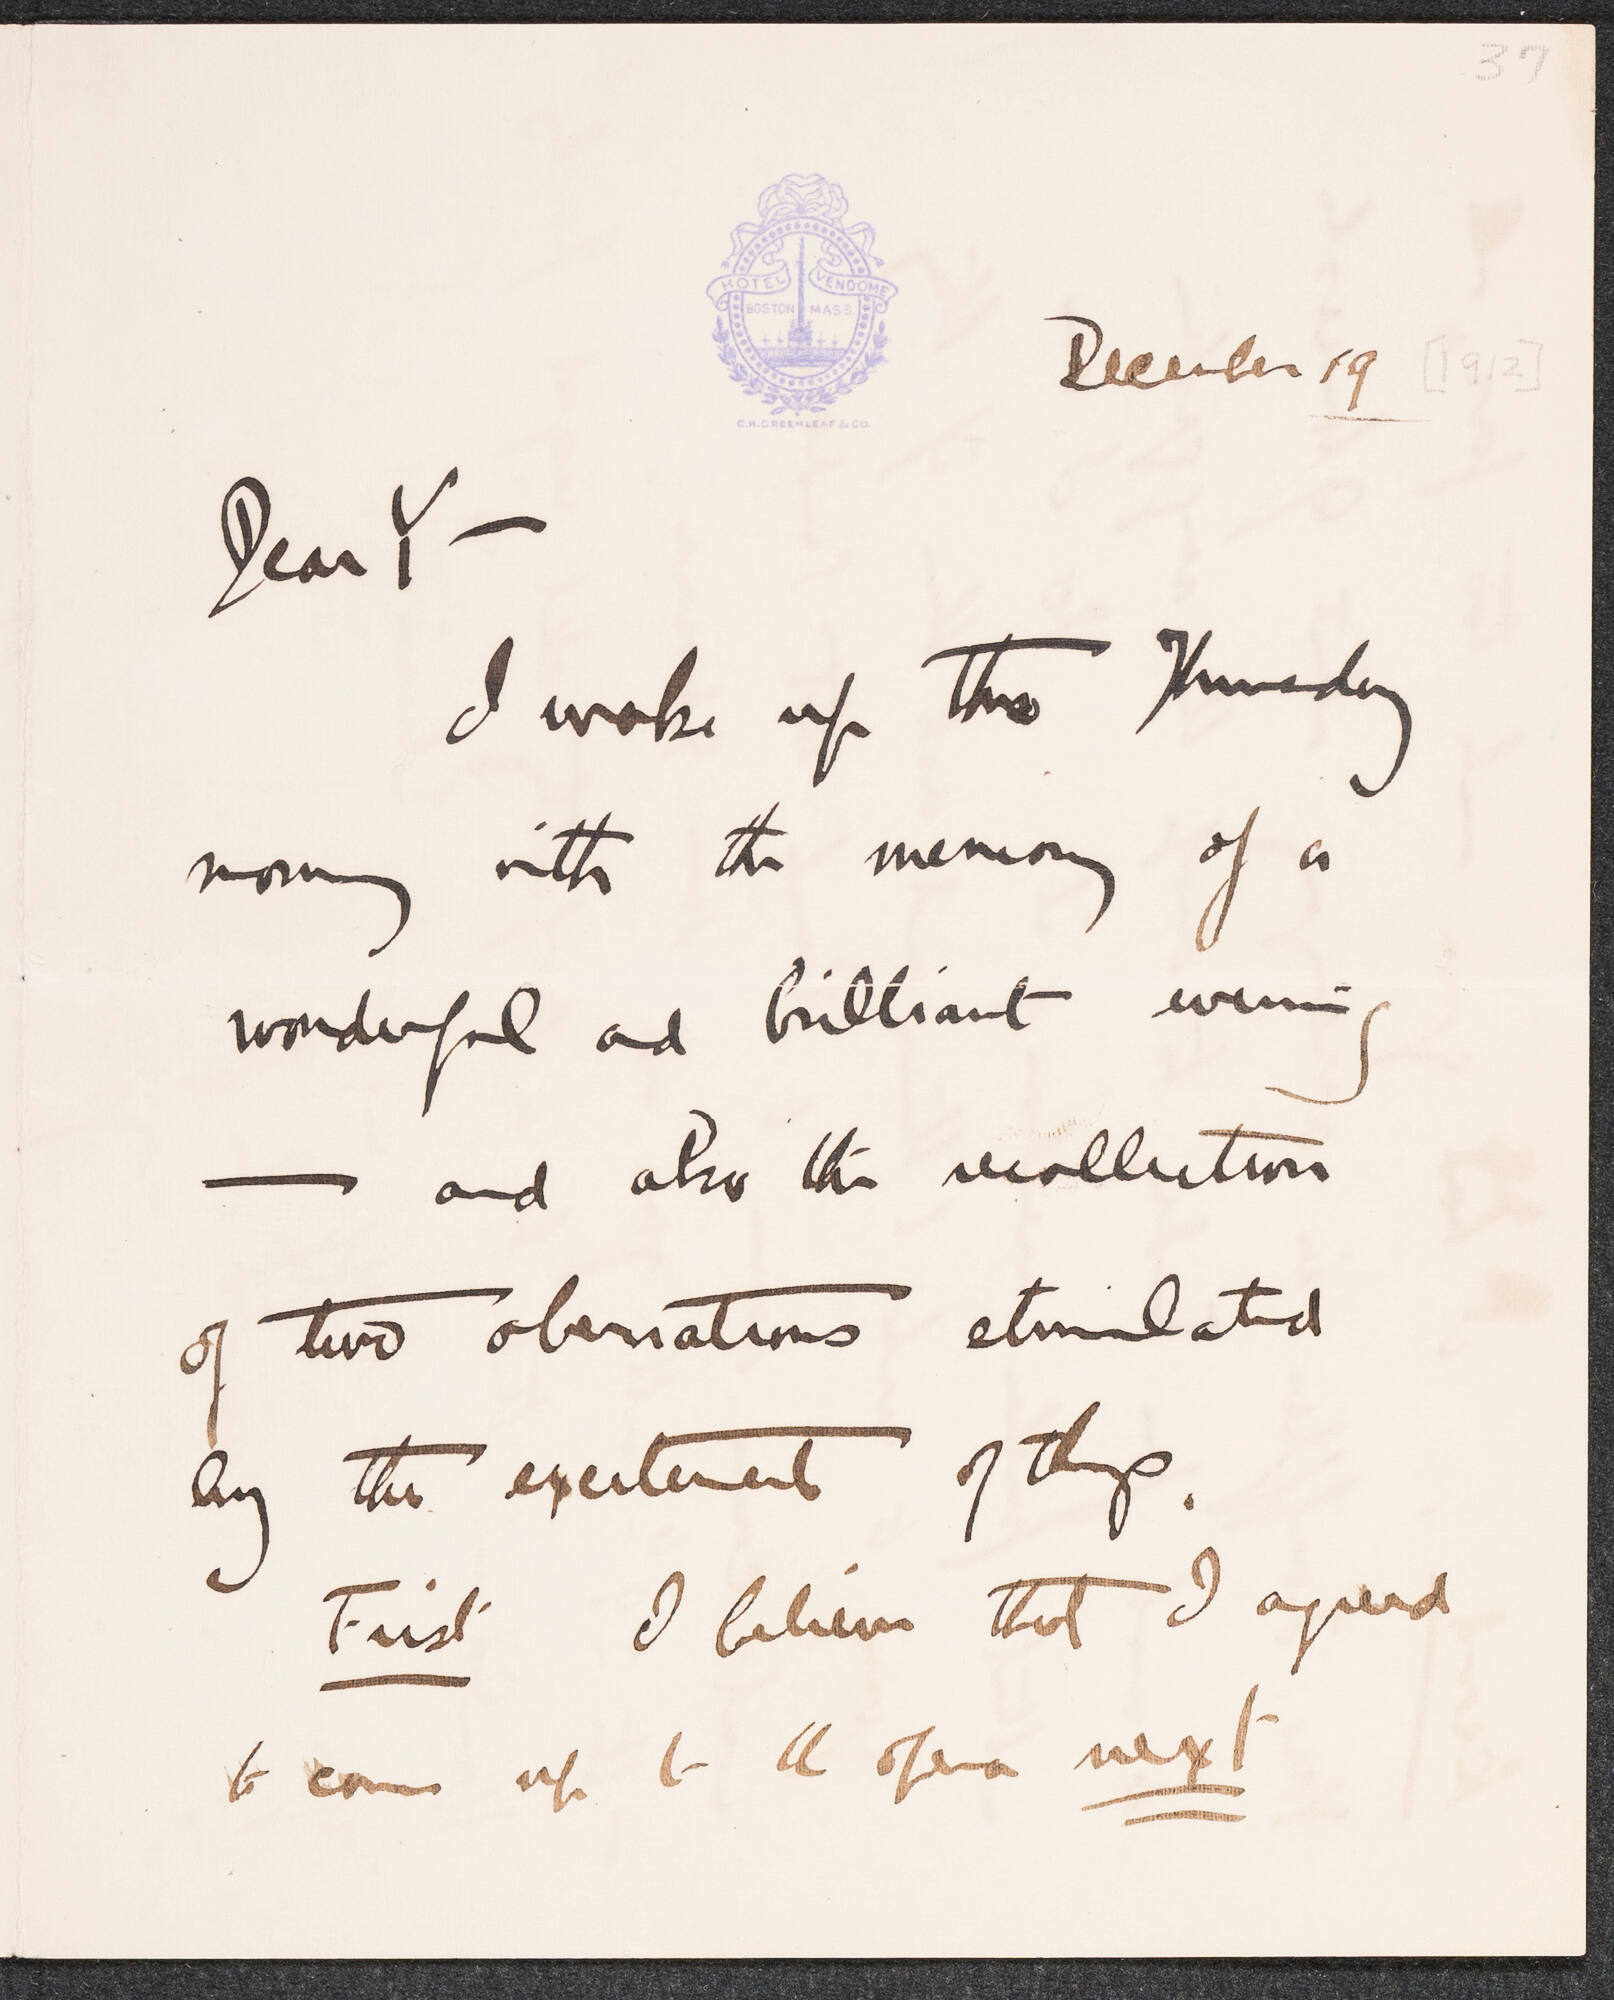 37
HOTEL VENDOME
BOSTON MASS.
C.H. GREENLEAF & CO.
December 19 [1912]
Dear Y —
I woke up this Thursday
morning with the memory of a
wonderful and brilliant evening
— and also the recollection
of two observations stimulated
by the excitement of things.
First I believe that I agreed
to come up to the opera next